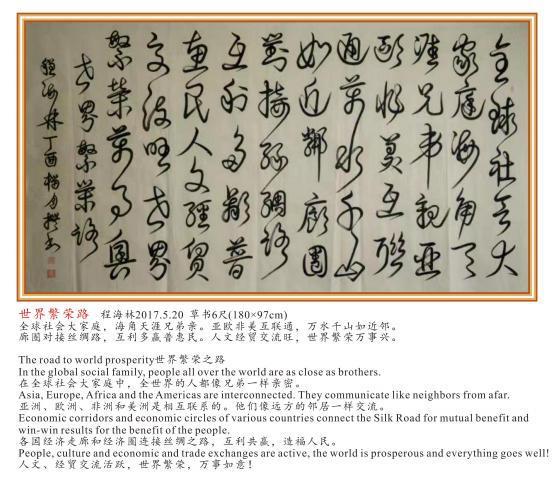 全球社会大
家庭海角天
涯兄弟親亚
欧非美互联
通万水千山
如近鄰廊圈
對接絲绸路
互利多赢普
惠民人文經貿
交流旺世界
繁荣万事興
世界繁荣路
程海林丁酉
世界繁荣路 程海林2017.5.20 草书6尺(180×97cm)
全球社会大家庭，海角天涯兄弟亲。亚欧非美互联通，万水千山如近邻。
廊圈对接丝绸路，互利多赢普惠民。人文经贸交流旺，世界繁荣万事兴。
The road to world prosperity世界繁荣之路
In the global social family, people all over the world are as close as brothers.
在全球社会大家庭中，全世界的人都像兄弟一样亲密。
Asia, Europe, Africa and the Americas are interconnected. They communicate like neighbors from afar.
亚洲、欧洲、非洲和美洲是相互联系的。他们像远方的邻居一样交流。
Economic corridors and economic circles of various countries connect the Silk Road for mutual benefit and
win-win results for the benefit of the people.
各国经济走廊和经济圈连接丝绸之路，互利共赢，造福人民。
People, culture and economic and trade exchanges are active, the world is prosperous and everything goes well!
人文、经贸交流活跃，世界繁荣，万事如意！